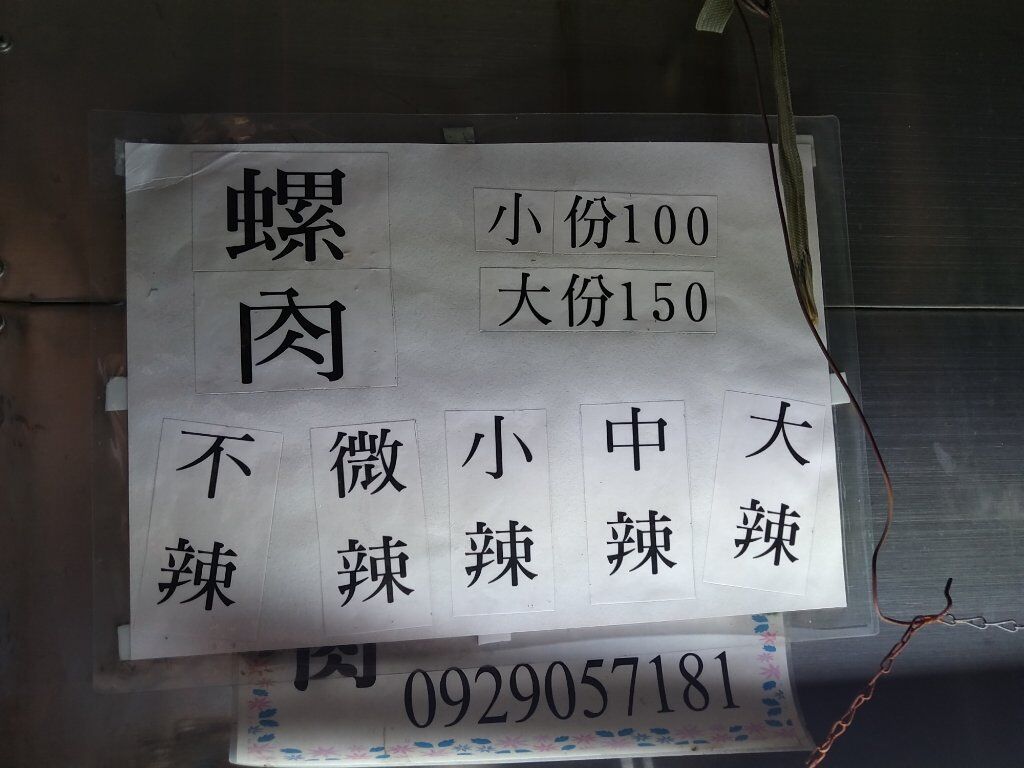 螺肉
小份100
大份150
不辣
微辣
小辣
中辣
大辣
肉
0929057181